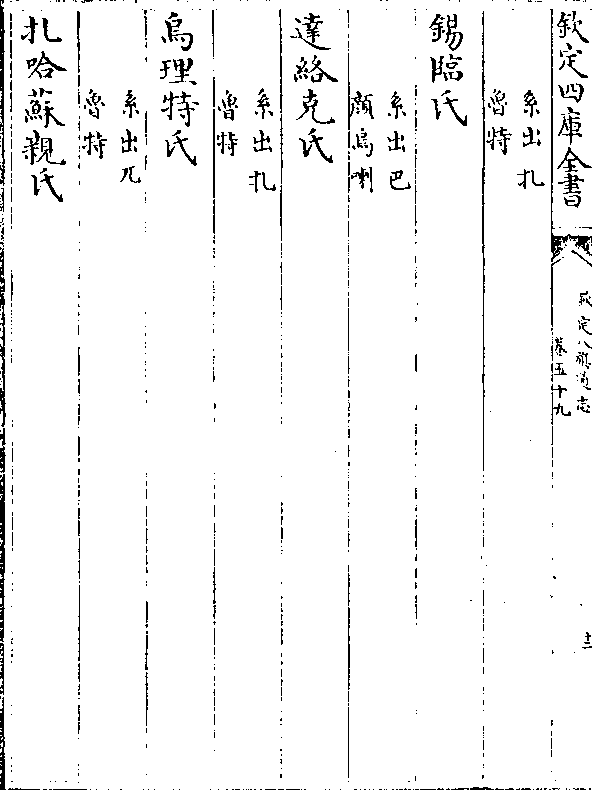 欽定四庫全書
欽定八旗通志
卷五十九
十二
系出扎
魯特
錫臨氏
系出巴
顔烏喇
達絡克氏
系出扎
魯特
烏理特氏
系出兀
魯特
扎哈蘇親氏